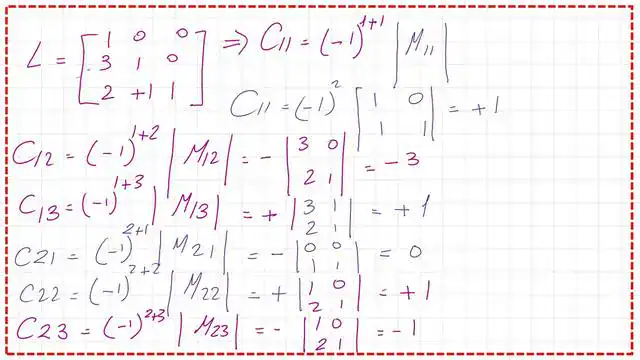 L = [1 0 0; 3 1 0; 2 +1 1] ⇒ C11 = (-1)^{1+1} |M11|
C11 = (-1)^2 |1 0; 1 1| = +1
C12 = (-1)^{1+2} |M12| = - |3 0; 2 1| = -3
C13 = (-1)^{1+3} |M13| = + |3 1; 2 1| = +1
C21 = (-1)^{2+1} |M21| = - |0 0; 1 1| = 0
C22 = (-1)^{2+2} |M22| = + |1 0; 2 1| = +1
C23 = (-1)^{2+3} |M23| = - |1 0; 2 1| = -1